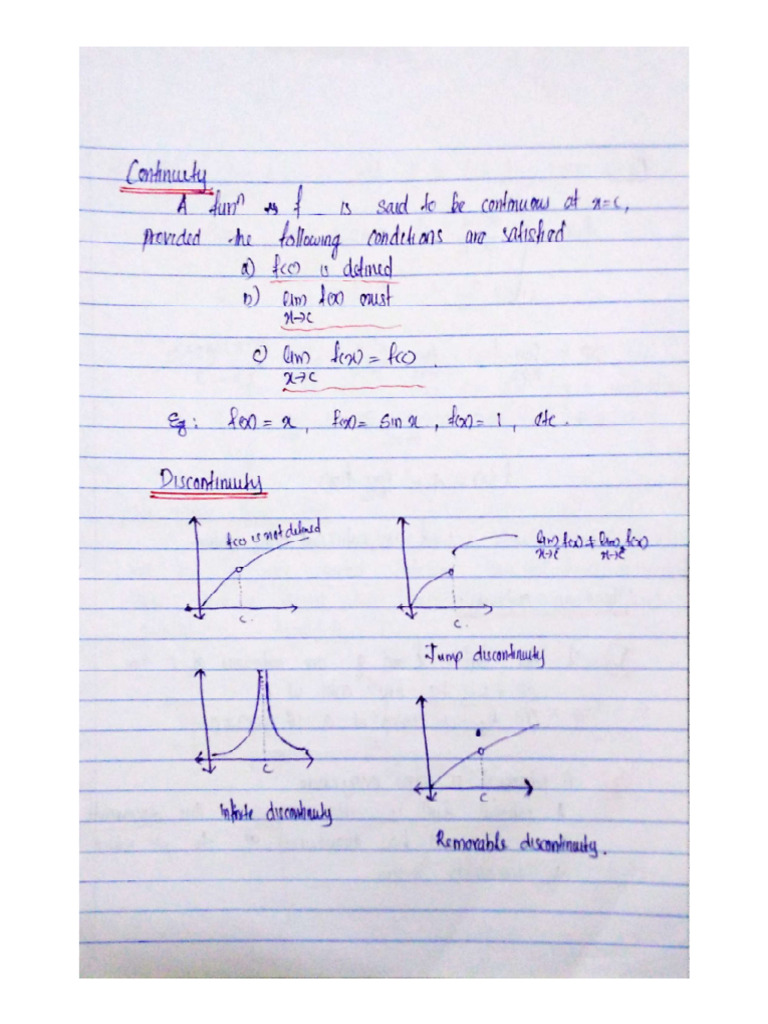 Continuity
A funⁿ f is said to be continuous at x=c,
provided the following conditions are satisfied
a) f(c) is defined
b) lim f(x) exist
x→c
c) lim f(x) = f(c).
x→c
Eg: f(x) = x, f(x) = sin x, f(x) = 1, etc.
Discontinuity
f(c) is not defined
lim f(x) ≠ lim f(x)
c.
c.
Jump discontinuity
c
c
Infinite discontinuity
Removable discontinuity.